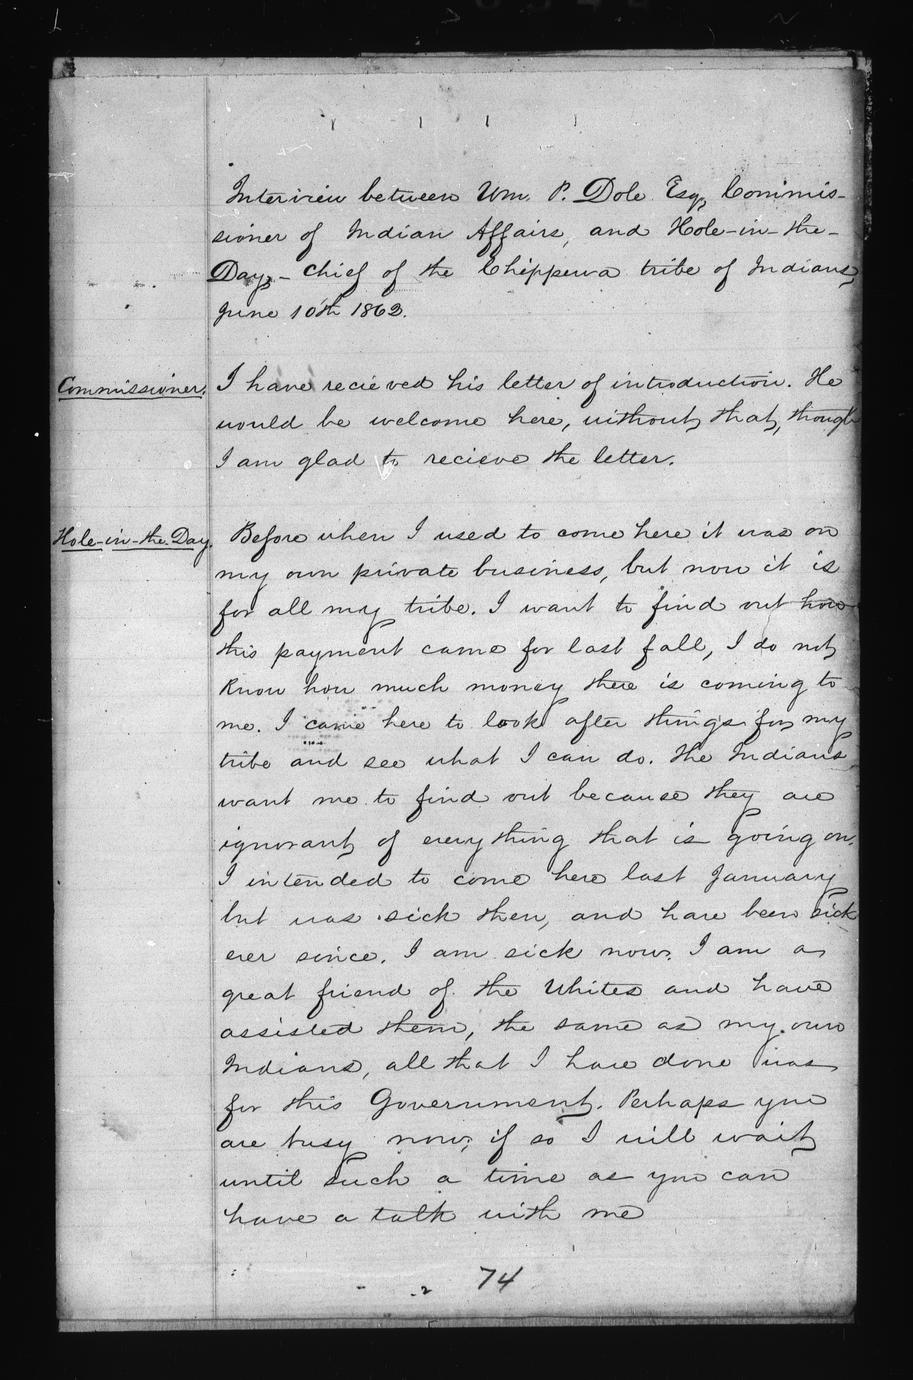 Interview between Wm. P. Dole Esq, Commis-
sioner of Indian Affairs, and Hole-in-the-
Day,- Chief of the Chippewa tribe of Indians,
June 10th 1862.
Commissioner. I have recieved his letter of introduction. He
would be welcome here, without that, though
I am glad to recieve the letter.
Hole-in-the-Day. Before when I used to come here it was on
my own private business, but now it is
for all my tribe. I want to find out how
this payment came for last fall, I do not
know how much money there is coming to
me. I came here to look after things for my
tribe and see what I can do. The Indians
want me to find out because they are
ignorant of everything that is going on.
I intended to come here last January
but was sick then, and have been sick
ever since. I am sick now. I am a
great friend of the Whites and have
assisted them, the same as my own
Indians, all that I have done was
for this Government. Perhaps you
are busy now, if so I will wait
until such a time as you can
have a talk with me
74